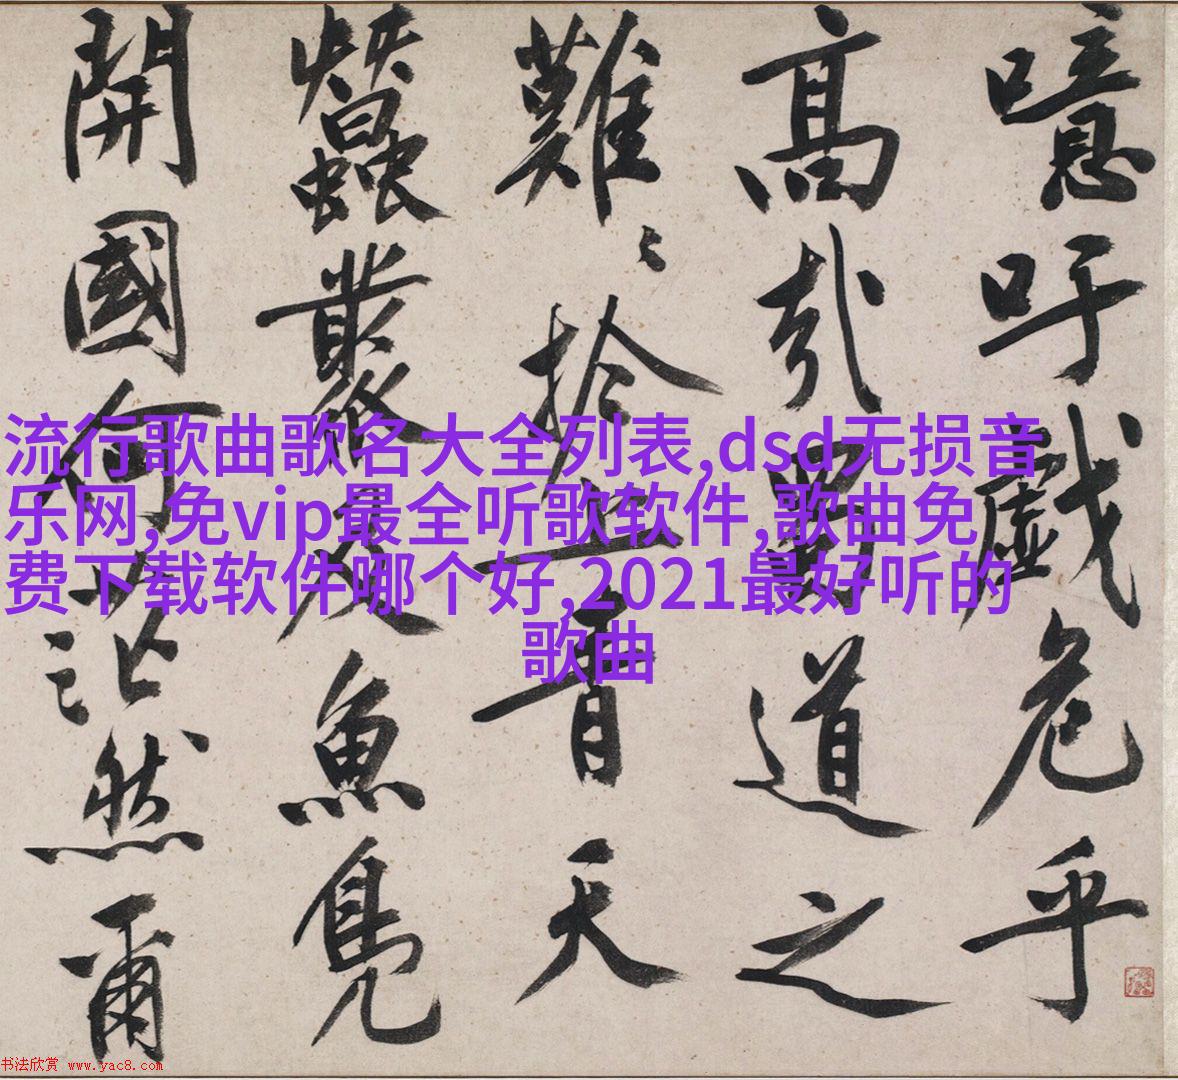 噫吁戲危乎
高哉蜀道之
難〻於上青天
蠶叢及魚鳧
開國何茫然爾
流行歌曲歌名大全列表,dsd无损音
乐网,免vip最全听歌软件,歌曲免
费下载软件哪个好,2021最好听的
歌曲
书法欣赏 www.yac8.com